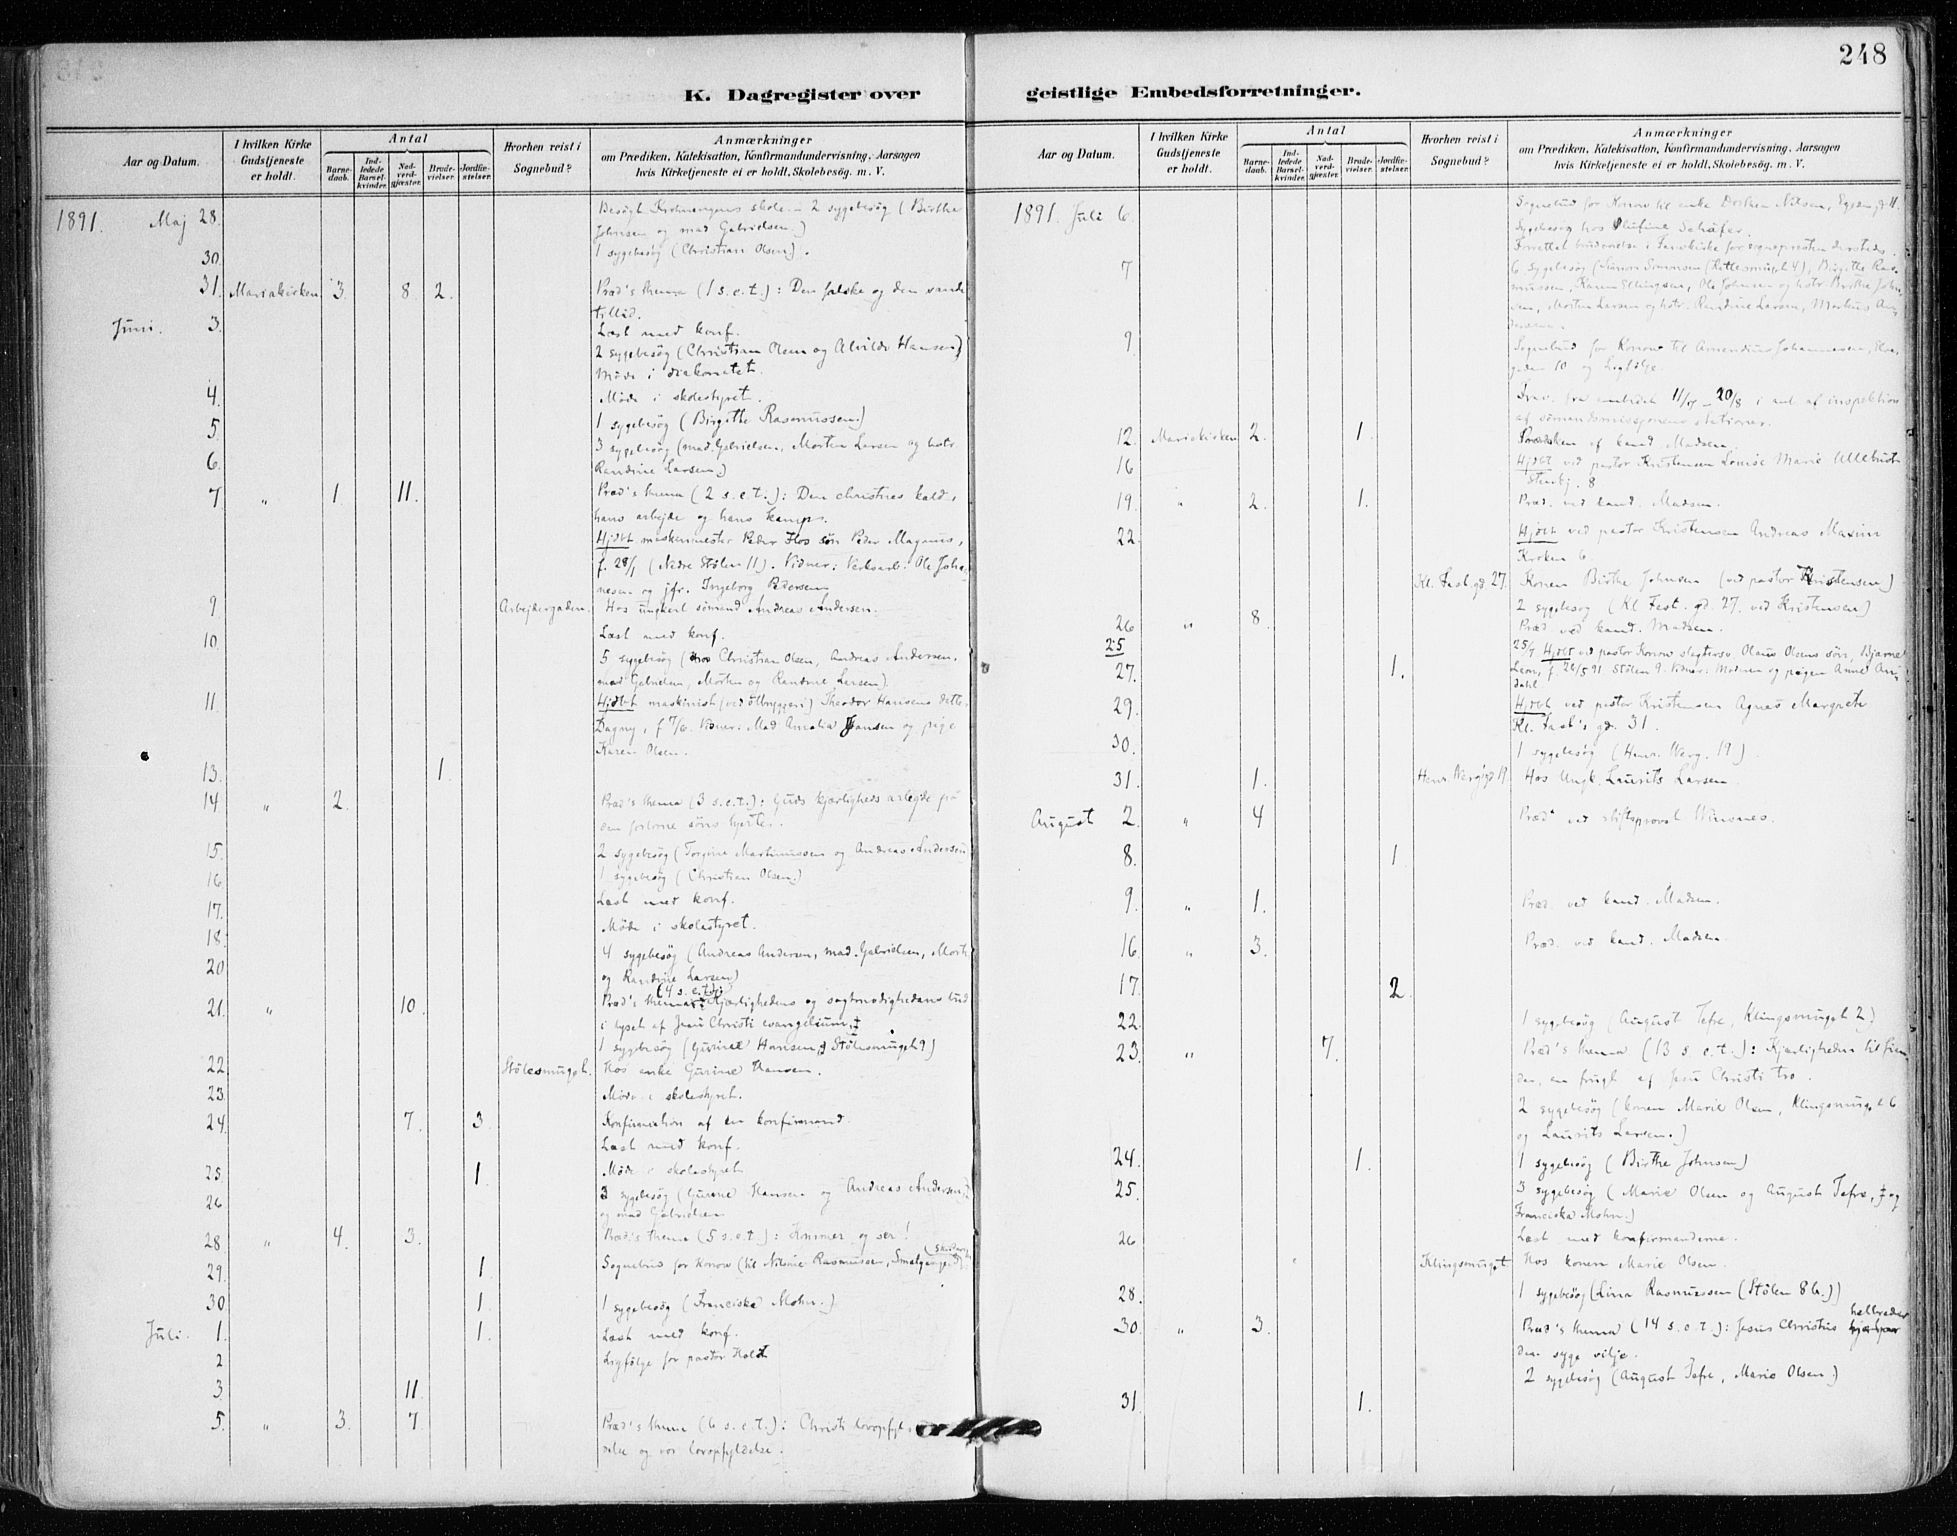 248
K. Dagregister over
geistlige Embedsforretninger.
Aar og Datum.
I hvilken Kirke Gudstjeneste er holdt.
Antal
Barnedaab.
Indledede Barselkvinder.
Nadverdgjæster.
Brudevielser.
Jordfæstelser.
Hvorhen reist i Sognebud?
Anmærkninger
om Prædiken, Katekisation, Konfirmandundervisning, Aarsagen
hvis Kirketjeneste ei er holdt, Skolebesög. m. V.
1891. Maj 28. Besögt Krohnengens skole. 2 sygebesög (Birthe
Johnsen og mad Gabrielsen.)
30. 1 sygebesög (Christian Olsen).
31. Mariakirken 3. 8 2. Præd's thema (1 s. e. t.): Den falske og den sande
tillid.
Juni. 3. Læst med konf.
2 sygebesög (Christian Olsen og Alvilde Hansen)
Möde i diakonatet.
4. Möde i skolestyret.
5. 1 sygebesög (Birgithe Rasmussen)
6. 3 sygebesög (mad. Gabrielsen, Morten Larsen og hstr
Randine Larsen.)
7 " 1. 11. Præd's thema (2 s. e. t.): Den christnes kald,
hans arbejde og hans kamp.
Hjdbt maskinmester Peder Hos sön Peder Magnus,
f. 28/1 (Nedre Stölen 11). Vidner: Verksarb. Ole Joha-
nesen og jfr. Ingeborg Pedersen
9 Arbejdergaden. Hos ungkarl sömand Andreas Andersen.
10 Læst med konf.
5 sygebesög (hos Christian Olsen, Andreas Andersen,
mad Gabrielsen, Morten og Randine Larsen)
11. Hjdbt maskinist (ved ölbryggeri) Theodor Hansens datter
Dagny, f 7/6. Vidner: Mad Amalia Jansen og pige
Karen Olsen.
13. 1.
14 " 2. Præd's thema (3 s. e. t.): Guds kjærligheds arbejde på
den fortorne söns hjerte.
15. 2 sygebesög (Torgine Martinussen og Andreas Andersen
16 1 sygebesög (Christian Olsen.)
17. Læst med konf.
18. Möde i skolestyret.
20 4 sygebesög (Andreas Andersen, mad. Gabrielsen, Morten
og Randine Larsen)
21. " 10. Præd's thema (4 s. e. t.): Kjærlighedens og sagtmodighedens bud
i lyset af Jesu Christi evangelium.
1 sygebesög (Gurine Hansen, Stölesmuget 9)
22 Stölesmuget. Hos enke Gurine Hansen.
23. Möde i skolestyret.
24. 7. 3. Konfirmation af en konfirmand.
Læst med konf.
25 1. Möde i skolestyret
26 3 sygebesög (Gurine Hansen og Andreas Andersen,
og mad Gabrielsen
28 " 4. 3. Præd's thema (5 s. e. t.): Kommer og ser!
29. 1. Sognebud for Konow (til Nilsine Rasmussen, Smalgangen
30 1. 1 sygebesög (Franciska Mohn.)
Juli. 1. 1. Læst med konf.
2 Ligfölge for pastor Holdt
3 11.
5. " 3. 7. Præd's thema (6 s. e. t.): Christi lovopfyl-
delse og vor lovopfyldelse.
Aar og Datum.
I hvilken Kirke Gudstjeneste er holdt.
Antal
Barnedaab.
Indledede Barselkvinder.
Nadverdgjæster.
Brudevielser.
Jordfæstelser.
Hvorhen reist i Sognebud?
Anmærkninger
om Prædiken, Katekisation, Konfirmandundervisning, Aarsagen
hvis Kirketjeneste ei er holdt, Skolebesög. m. V.
1891. Juli 6. Sognebud for Konow til enke Dorthea Nilsen,
Sygebesög hos Schäfer.
Forrettet brudevielse i for sognepresten dersteds.
7 6 sygebesög (Simonsen (Rottesmuget 4), Birgithe Ras-
mussen, Karen Ellingsen, Ole Johnsen og hstr. Birthe John-
sen, Morten Larsen og hstr. Randine Larsen, Markus An-
dersen.
9. Sognebud for Konow til Johannessen,
gaden 10 og Ligfölge.
fra embedet 11/7 – 20/8 i anl. af inspektion
af sömandsmissionens stationer.
12. Mariakirken 2. 1. Præd af kand Madsen.
16 Hjdbt ved pastor Kristensen Louise Marie Ullebust
8
19. " 2. 1. Præd. ved kand. Madsen.
22. Hjdbt ved pastor Kristensen Andreas Maxim
Kroken 6.
Kl. Fæst. gd 27. Konen Birthe Johnsen (ved pastor Kristensen)
2 sygebesög (Kl Fest. gd. 27. ved Kristensen)
26 " 8. Præd ved kand. Madsen.
25 25/7 Hjdbt ved pastor Konow slagtersv. Olaus Olsens sön, Bjarne
27. 1. Leon, f. 26/5 91 Stölen 9. Vidner: Moderen og pigen Anne An-
dahl
29. Hjdbt ved pastor Kristensen Agnes Margrete
Kl. Fæst's gd. 31.
30. 1 sygebesög (Henr. Werg. 19).
31. 1. Henr. Werg's gd 19. Hos Ungk. Laurits Larsen.
August 2. " 4 Præd ved stiftsprovst Winsnes.
8. 1
9. " 1. Præd. ved kand. Madsen.
16 " 3. Præd. ved kand. Madsen.
17. 2.
22. 1 sygebesög (August Tefre, Klingsmuget 2.)
23. " 7. Præd's thema (13 s. e. t.): Kjærligheden til fien-
den, en frugt af Jesu Christi tro.
2 sygebesög (konen Marie Olsen, Klingsmuget 6
og Laurits Larsen.)
24. 1. 1 sygebesög (Birthe Johnsen)
25. 3 sygebesög (Marie Olsen og August Tefre, og
Franciska Mohn.)
26 Læst med konfirmanderne.
Klingsmuget Hos konen Marie Olsen.
28. 1 sygebesög (Lina Rasmussen (Stölen 8 b.))
30. " 3. Præd's thema (14 s. e. t.): Jesus Christus helbreder
den syge vilje.
2 sygebesög (August Tefre, Marie Olsen.)
31. 1.